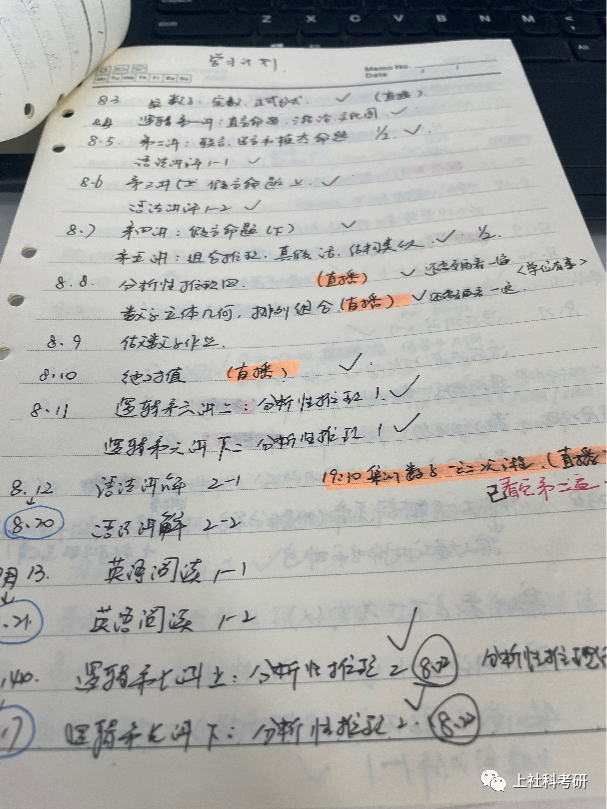 学习计划
Memo No.
Mo Tu We Th Fr Sa Su
Date / /
8.3 数学: 实数, ✓ (直播)
逻辑第一讲: 直言命题 ✓
8.5. 第二讲: 联言, 选言和推大命题 1/2. ✓
语法讲评1-1 ✓
8.6 第三讲(上 假言命题上. ✓
语法讲评1-2 ✓
8.7 第四讲: 假言命题 (下) ✓
第五讲: 组合推理, 真假话, 结构类似 ✓ 1/2.
8.8. 分析性推理四. (直播) ✓ 还需要再看一遍
数学立体几何, 排列组合 (直播) ✓ 还需要再看一遍
8.9 做数学作业.
8.10 绝对值 (直播) ✓.
8.11 逻辑第六讲上: 分析性推理 1. ✓
逻辑第六讲下: 分析性推理 1 ✓
8.12 语法讲解 2-1 19:30 数学一元二次方程. (直播
已看完第二遍
8.20 语法讲解 2-2
月13. 英语阅读 1-1
.21. 英语阅读 1-2
逻辑第七讲上: 分析性推理 2 ✓ 8.22 分析性推理
.17 逻辑第七讲下: 分析性推理 2. ✓ 8.22
上社科考研